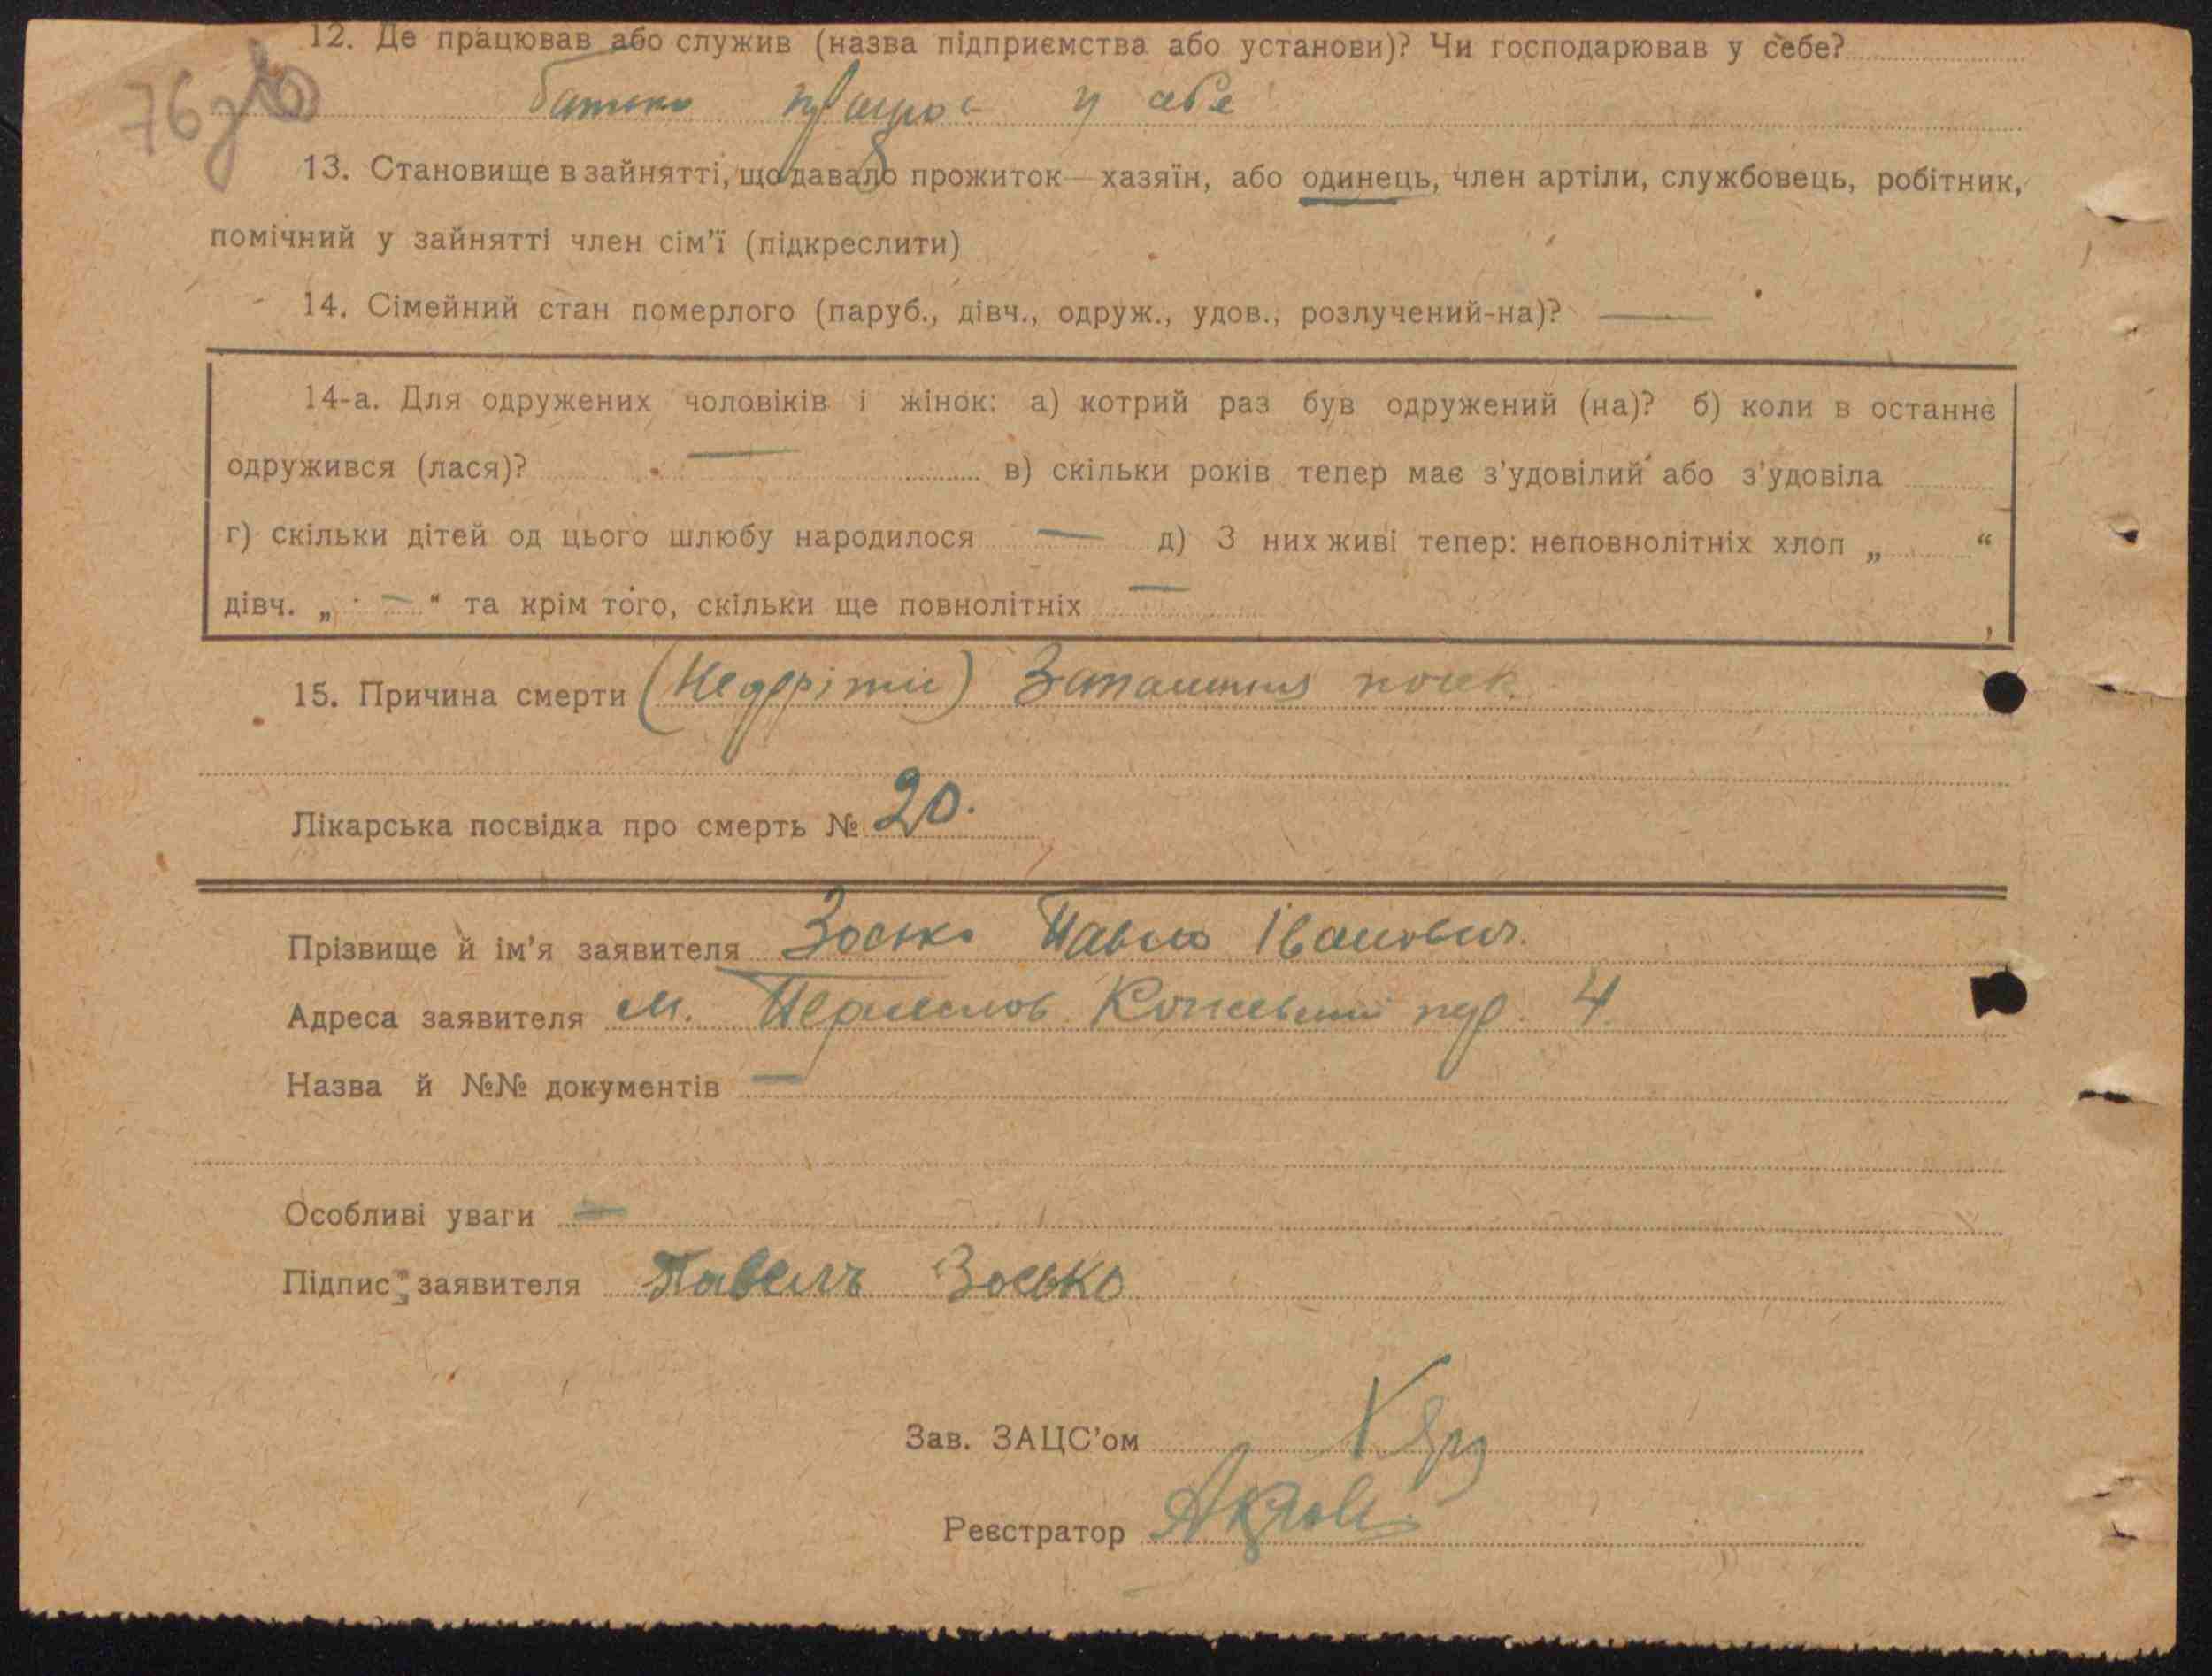 12. Де працював або служив (назва підприємства або установи)? Чи господарював у себе?
76
батько працює у себе
13. Становище в зайнятті, що давало прожиток—хазяїн, або одинець, член артіли, службовець, робітник,
помічний у зайнятті член сім’ї (підкреслити)
14. Сімейний стан померлого (паруб., дівч., одруж., удов., розлучений-на)? —
14-а. Для одружених чоловіків і жінок: а) котрий раз був одружений (на)? б) коли в останнє
одружився (лася)? — в) скільки років тепер має з’удовілий або з’удовіла
г) скільки дітей од цього шлюбу народилося — д) З них живі тепер: неповнолітніх хлоп „ “
дівч. „ — “ та крім того, скільки ще повнолітніх —
15. Причина смерти (Недріти)
Лікарська посвідка про смерть № 20.
Прізвище й ім’я заявителя Зосько Павло Іванович.
Адреса заявителя м. 4.
Назва й №№ документів —
Особливі уваги —
Підпис заявителя Павелъ Зосько
Зав. ЗАЦС’ом
Реєстратор